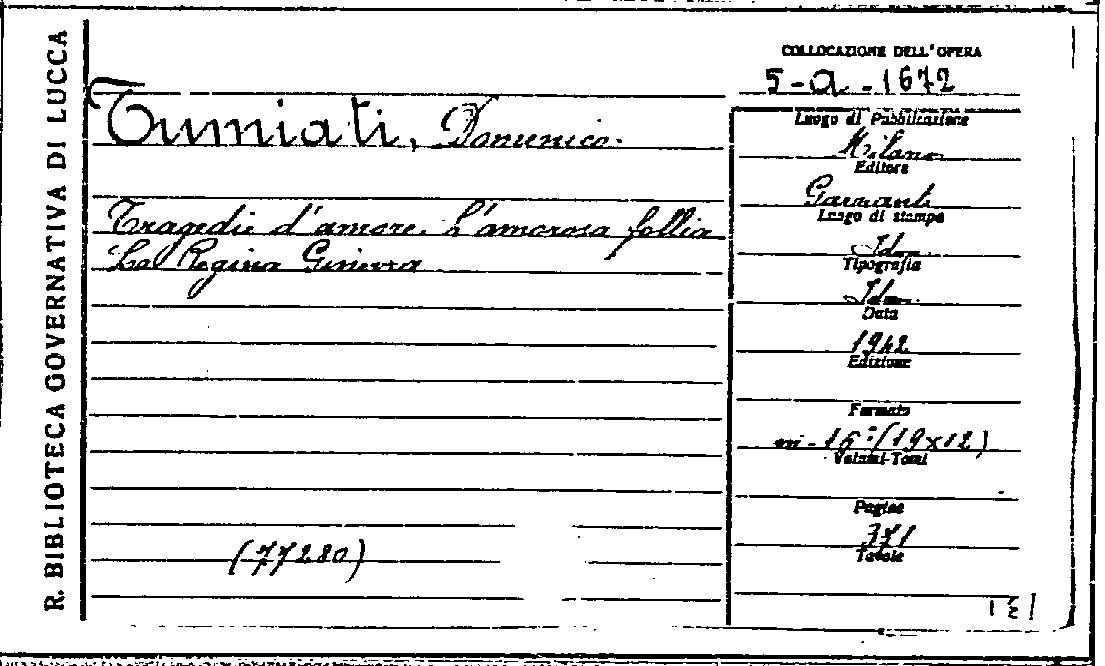 R. BIBLIOTECA GOVERNATIVA DI LUCCA
COLLOCAZIONE DELL'OPERA
5-a-1672
Tumiati, Domenico.
Tragedie d'amore. L'amorosa follia
La Regina Ginevra
(77280)
Luogo di Pubblicazione
Milano
Editore
Garzanti
Luogo di stampa
Idem
Tipografia
Idem
Data
1942
Edizione
Formato
in-16°(19x12)
Volumi-Tomi
Pagine
371
Tavole